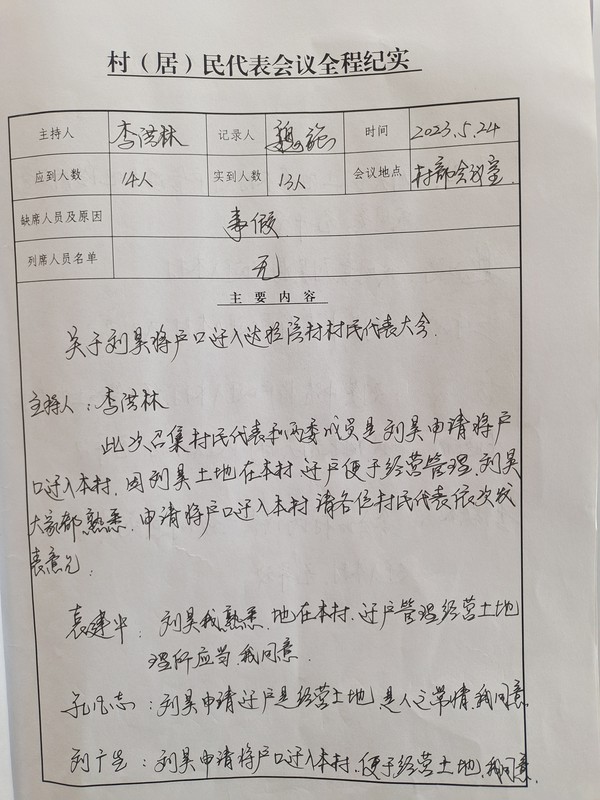 村（居）民代表会议全程纪实
主持人 李洪林 记录人 时间 2023.5.24
应到人数 14人 实到人数 13人 会议地点 村部会议室
缺席人员及原因 事假
列席人员名单 无
主要内容
关于刘昊将户口迁入达拉浯村村民代表大会.
主持人：李洪林
此次召集村民代表和两委成员是刘昊申请将户
口迁入本村.因刘昊土地在本村.迁户便于经营管理.刘昊
大家都熟悉.申请将户口迁入本村请各位村民代表依次发
表意见.
袁建华：刘昊我熟悉.地在本村.迁户管理经营土地
理所应当.我同意.
孔凡志：刘昊申请迁户是经营土地 是人之常情.我同意.
刘广生：刘昊申请将户口迁入本村.便于经营土地.我同意.